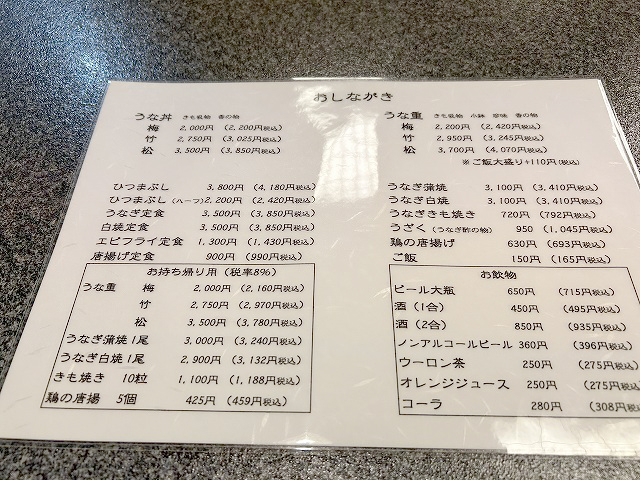 おしながき
うな丼 きも吸物 香の物
梅 2,000円 (2,200円税込)
竹 2,750円 (3,025円税込)
松 3,500円 (3,850円税込)
ひつまぶし 3,800円 (4,180円税込)
ひつまぶし(ハーフ) 2,200円 (2,420円税込)
うなぎ定食 3,500円 (3,850円税込)
白焼定食 3,500円 (3,850円税込)
エビフライ定食 1,300円 (1,430円税込)
唐揚げ定食 900円 (990円税込)
お持ち帰り用 (税率8%)
うな重 梅 2,000円 (2,160円税込)
竹 2,750円 (2,970円税込)
松 3,500円 (3,780円税込)
うなぎ蒲焼 1尾 3,000円 (3,240円税込)
うなぎ白焼 1尾 2,900円 (3,132円税込)
きも焼き 10粒 1,100円 (1,188円税込)
鶏の唐揚 5個 425円 (459円税込)
うな重 きも吸物 小鉢 珍味 香の物
梅 2,200円 (2,420円税込)
竹 2,950円 (3,245円税込)
松 3,700円 (4,070円税込)
※ご飯大盛り+110円(税込)
うなぎ蒲焼 3,100円 (3,410円税込)
うなぎ白焼 3,100円 (3,410円税込)
うなぎきも焼き 720円 (792円税込)
うざく (うなぎ酢の物) 950 (1,045円税込)
鶏の唐揚げ 630円 (693円税込)
ご飯 150円 (165円税込)
お飲物
ビール大瓶 650円 (715円税込)
酒 (1合) 450円 (495円税込)
酒 (2合) 850円 (935円税込)
ノンアルコールビール 360円 (396円税込)
ウーロン茶 250円 (275円税込)
オレンジジュース 250円 (275円税込
コーラ 280円 (308円税込